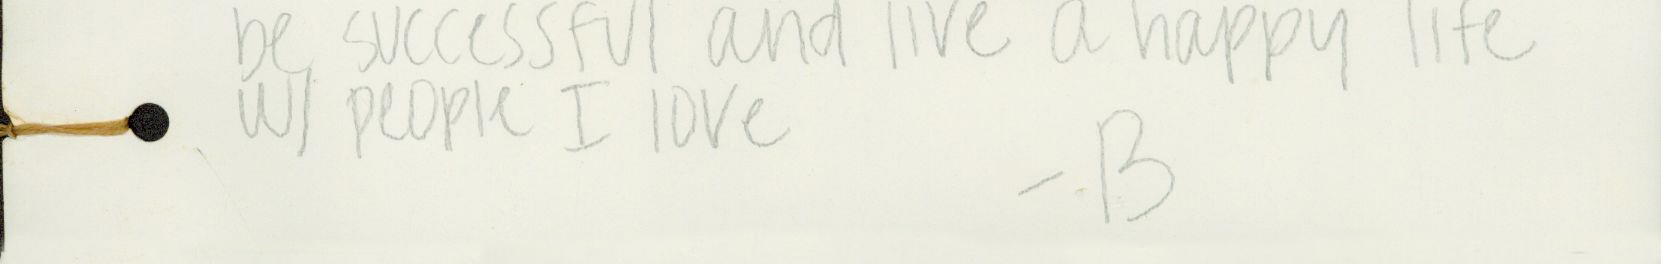 be successful and live a happy life
w/ people I love
- B